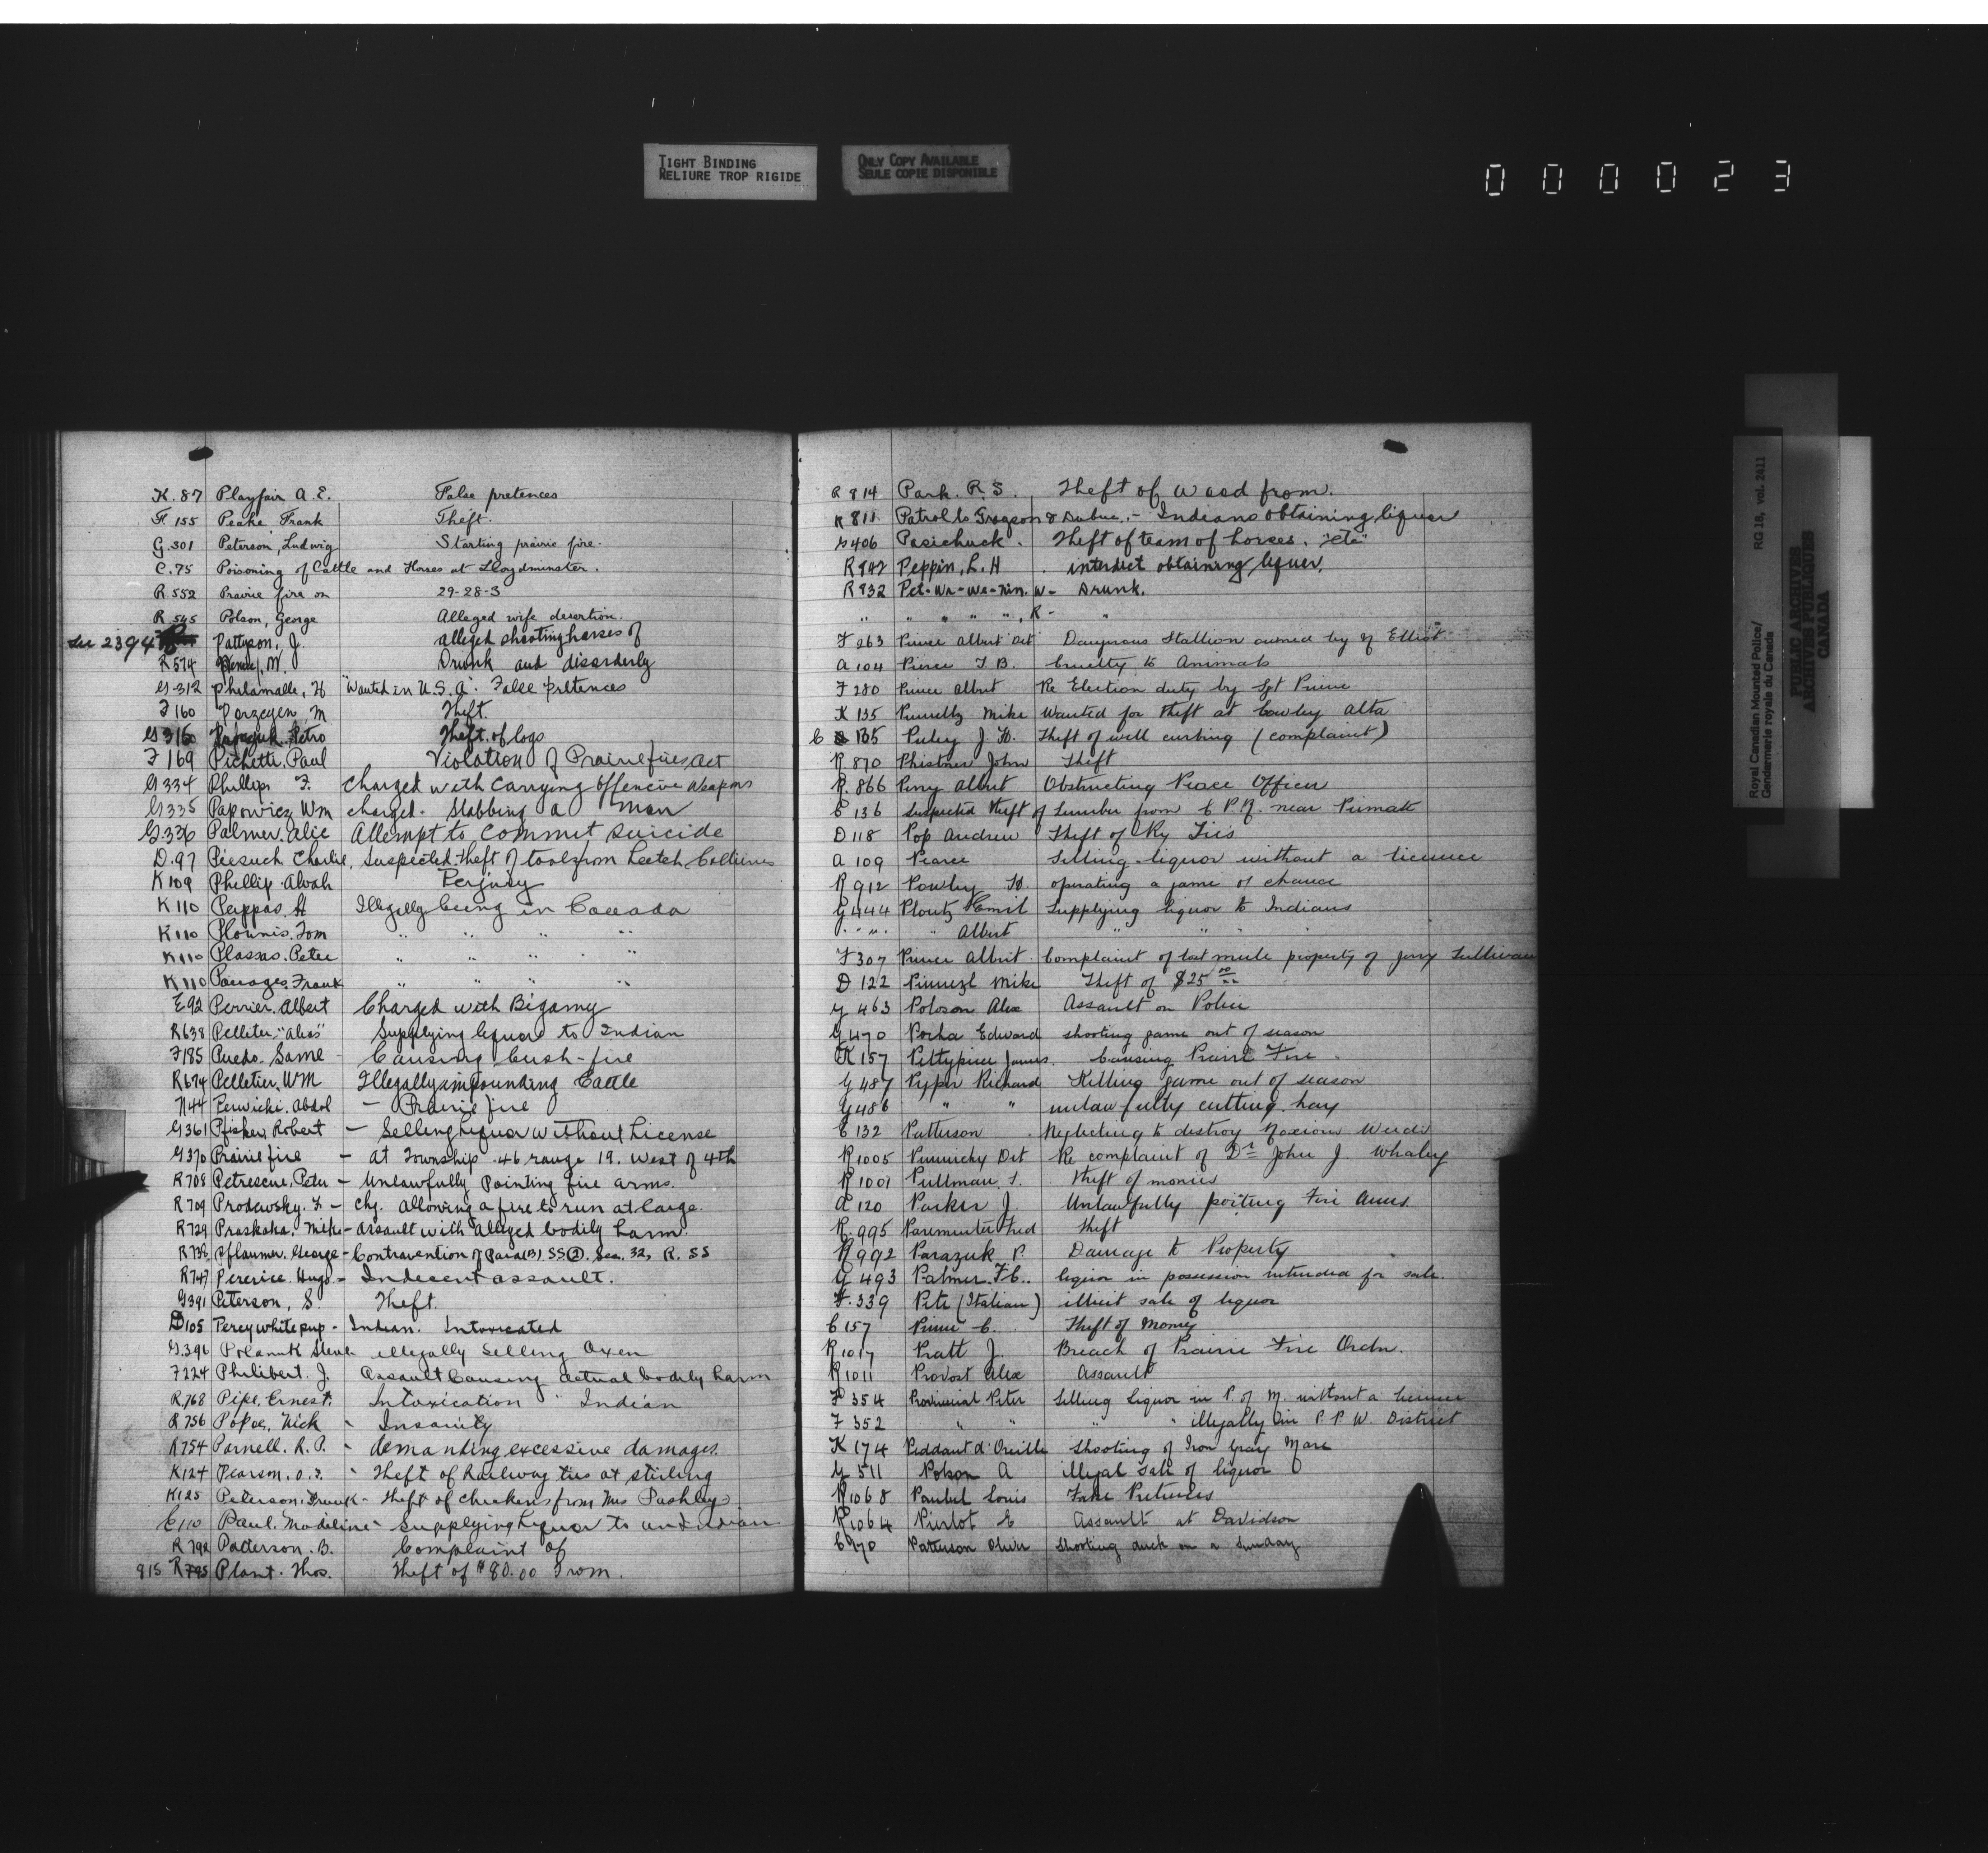 TIGHT BINDING
RELIURE TROP RIGIDE
ONLY COPY AVAILABLE
SEULE COPIE DISPONIBLE
000023
K.87 Playfair A.E. False pretences
F.155 Peake Frank Theft.
G.301 Peterson, Ludwig Starting prairie fire.
C.75 Poisoning of Cattle and Horses at Lloydminster.
R.552 Prairie fire on 29-28-3
R.545 Polson, George Alleged wife desertion.
See 2394 Pattyson, J. alleged shooting horses of
R574 M. Drunk and disorderly
G312 Philamalle, H "Wanted in U.S.A". False pretences
F160 Porzegen, M Theft.
G316 Petro Theft of logs
F169 Pichette, Paul Violation of Prairie fires Act
G334 Phillips F. Charged with Carrying offencive Weapons
G335 Papowicz Wm charged. Stabbing a man
G.336 Palmer. Alic Attempt to commit suicide
D.97 Piesuch Charlie, Suspected theft of tools from Leetch Collieries
K109 Phillip. Alvah Perjury
K110 Pappas. H Illegally being in Canada
K110 Plounis. Tom " " " "
K110 Plassas. Peter " " " "
K110 Panages, Frank " " " "
E92 Perrier. Albert Charged with Bigamy
R638 Pelletier "Alias" Supplying liquor to Indian
F185 Puedo. Same - Causing bush-fire
R674 Pelletier, WM Illegally impounding Cattle
N44 Perwicki. Abdol - Prairie fire
G361 Pfisker, Robert - Selling liquor without License
G370 Prairie fire - at Township 46 range 19. West of 4th
R708 Petrescue, Peter - Unlawfully Pointing fire arms.
R709 Prodewsky. F. - Chg. allowing a fire to run at large.
R729 Praskaha. Mike - assault with alleged bodily harm.
R738 Pflaumer. George - Contravention of Para (B). SS(2). Sec. 32, R. SS
R747 Pererice. Hugo - Indecent assault.
G391 Peterson, S. Theft.
D105 Percy white pup - Indian. Intoxicated
G.396 Polanuk Steve - illegally Selling Oxen
F224 Philibert. J. Assault Causing actual bodily harm
R.768 Pipe, Ernest. Intoxication " Indian
R756 Popoe, Nick - Insanity
R754 Parnell. R.P. - demanding excessive damages.
K124 Pearson. O.F. - Theft of Railway ties at stirling
K125 Peterson, Frank - Theft of chickens from Mrs Pashley
C110 Paul. Madeline - Supplying Liquor to an Indian
R792 Patterson. B. Complaint of
815 R795 Plant. Thos. Theft of $80.00 From.
R814 Park. R.S. Theft of Wood from.
R811 Patrol to Grayson & Dubuc. - Indians obtaining liquor
G406 Pasichuck. Theft of team of horses. "etc"
R842 Peppin, L.H. interdict obtaining liquor.
R832 Pet-Wa-We-Nin. W- Drunk.
" " " " ", R- "
F263 Prince Albert Det Dangerous Stallion owned by Elliot
A104 Pierce T.B. Cruelty to Animals
F280 Prince Albert Re Election duty by Sgt Prime
K135 Mike Wanted for theft at Cowley Alta
C 135 Puley J.H. Theft of well curbing (complaint)
R.870 Phistner John Theft
R.866 Perry Albert Obstructing Peace Officer
C136 Suspected theft of Lumber from C.P.R. near Peimate
D118 Pop Andrew Theft of Ry Ties
A109 Pearce Selling liquor without a licence
R912 Powley H. operating a game of chance
G444 Ploutz Emil Supplying liquor to Indians
" " " Albert " " "
F307 Prince Albert Complaint of lost mule property of Jerry Sullivan
D122 Mike Theft of $25 00
G463 Poloson Alex Assault on Police
G470 Porha Edward shooting game out of season
K157 Pettypiece James. Causing Prairie Fire.
G487 Pyper Richard Killing game out of season
G486 " " unlawfully cutting hay
C132 Patterson Neglecting to destroy Noxious Weeds
R1005 Det Re complaint of Dr John J. Whaley
R1001 Pullman. S. Theft of monies
A120 Parker J. Unlawfully poiting Fire Arms.
R.995 Paremeuter Fred Theft
R992 Parazuk P. Damage to Property
G493 Palmer. F.C. liquor in possession intended for sale.
F.339 Pete (Italian) illicit sale of liquor
C157 Prime C. Theft of Money
R1017 Pratt J. Breach of Prairie Fire Ordn.
R1011 Provost Alex Assault
F354 Provincial Peter Selling Liquor in P. of M. without a licence
F352 " " " " illegally in P.P.W. District
K174 Peddant d'Oreille Shooting of Iron Gray Mare
G511 Polson A illegal sale of liquor
R1068 Paubel Louis False Pretences
R1064 Pierlot E Assault at Davidson
C170 Patterson Oliver Shooting duck on a Sunday
Royal Canadian Mounted Police/
Gendarmerie royale du Canada
RG 18, vol. 2411
PUBLIC ARCHIVES
ARCHIVES PUBLIQUES
CANADA